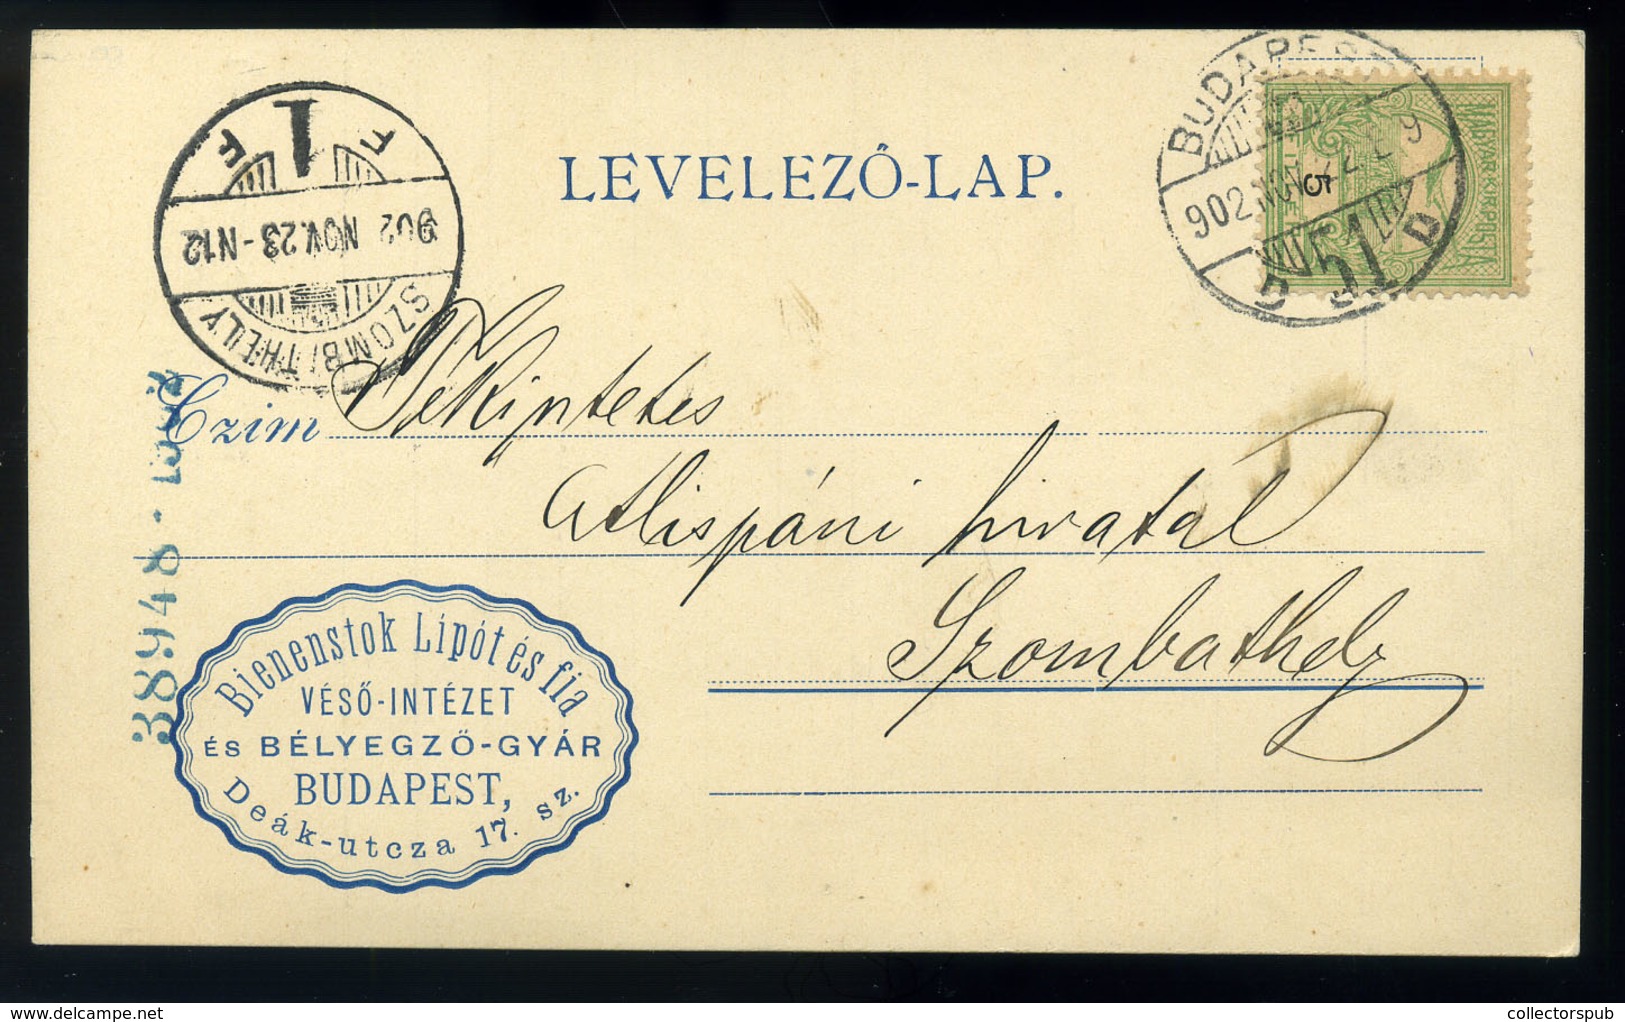 LEVELEZŐ-LAP.
BUDAPEST
902 NOV. 22
51
D
MAGYAR KIR. POSTA
5
F 1 F
902 NOV. 23 - N12
SZOMBATHELY
Czim Tekintetes
Alispáni hivatal
Szombathely
38948
Bienenstok Lipót és fia
VÉSŐ-INTÉZET
ÉS BÉLYEGZŐ-GYÁR
BUDAPEST,
Deák-utcza 17. sz.
collectorspub.com